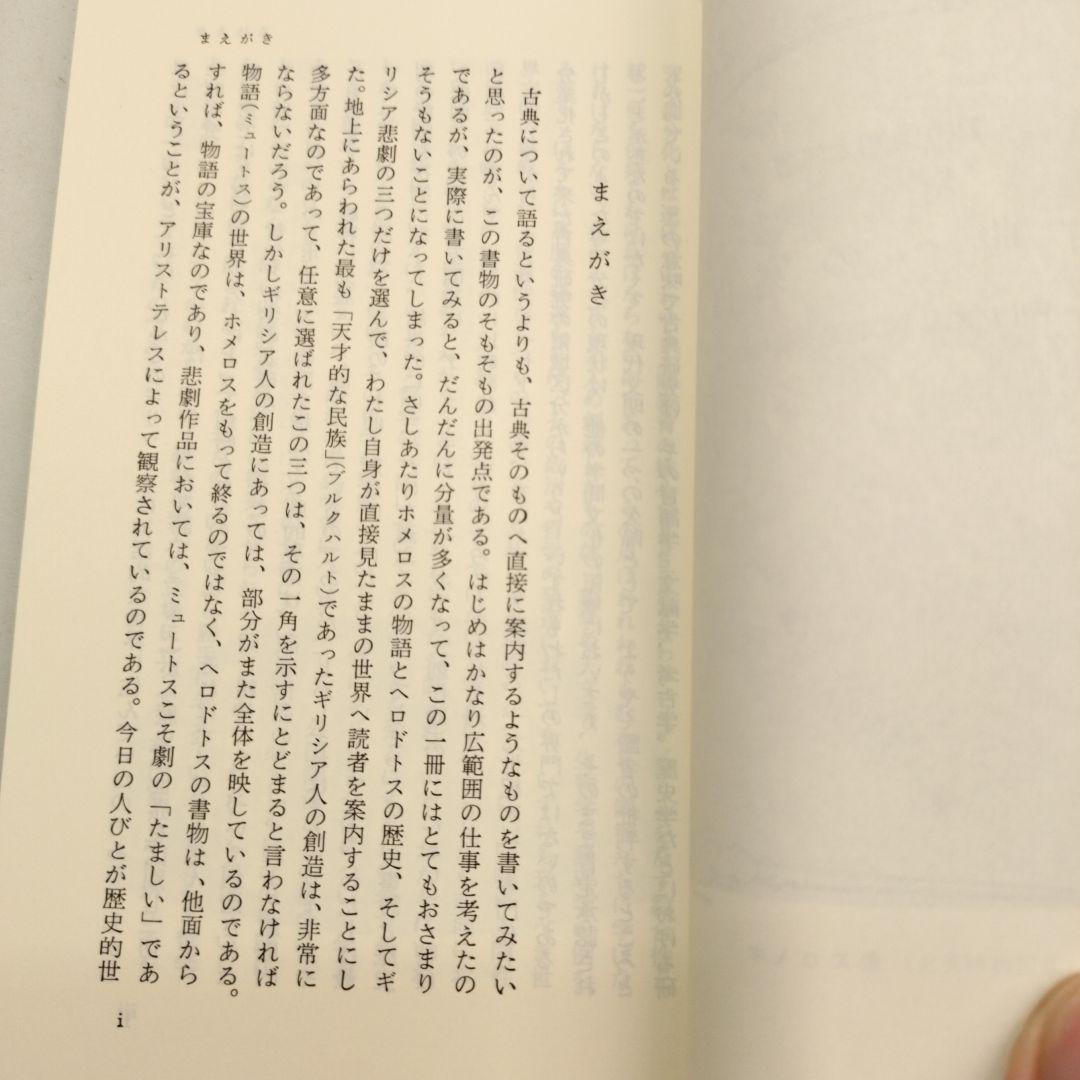 まえがき
まえがき
古典について語るというよりも、古典そのものへ直接に案内するようなものを書いてみたい
と思ったのが、この書物のそもそもの出発点である。はじめはかなり広範囲の仕事を考えたの
であるが、実際に書いてみると、だんだんに分量が多くなって、この一冊にはとてもおさまり
そうもないことになってしまった。さしあたりホメロスの物語とヘロドトスの歴史、そしてギ
リシア悲劇の三つだけを選んで、わたし自身が直接見たままの世界へ読者を案内することにし
た。地上にあらわれた最も「天才的な民族」(ブルクハルト)であったギリシア人の創造は、非常に
多方面なのであって、任意に選ばれたこの三つは、その一角を示すにとどまると言わなければ
ならないだろう。しかしギリシア人の創造にあっては、部分がまた全体を映しているのである。
物語(ミュートス)の世界は、ホメロスをもって終るのではなく、ヘロドトスの書物は、他面から
すれば、物語の宝庫なのであり、悲劇作品においては、ミュートスこそ劇の「たましい」であ
るということが、アリストテレスによって観察されているのである。今日の人びとが歴史的世
i